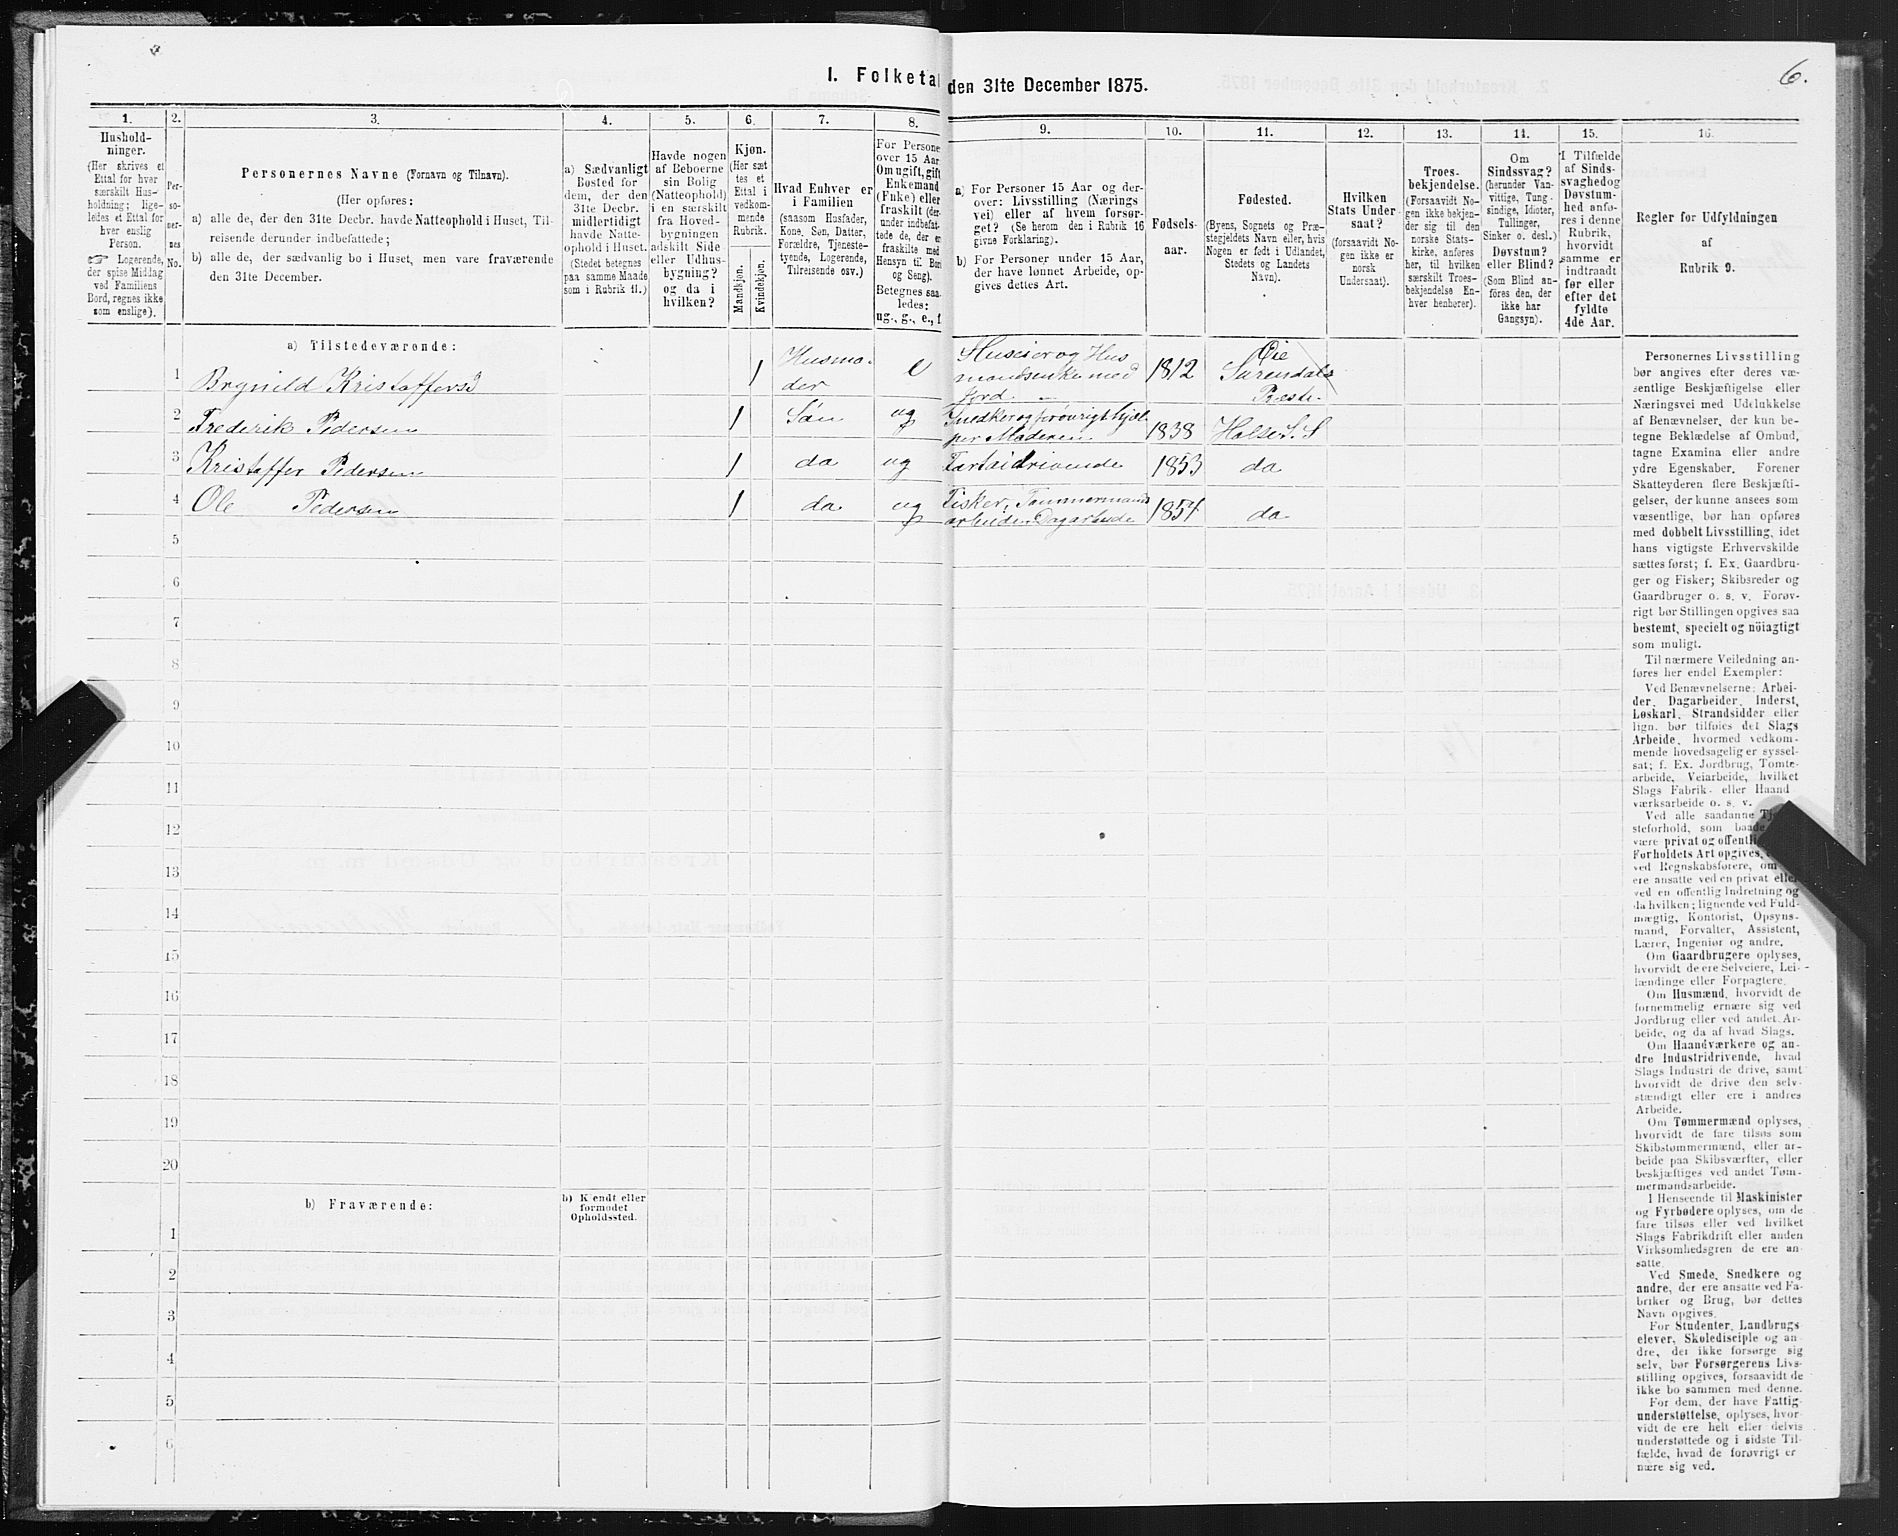 6.
I. Folketal den 31te December 1875.
1. 2. 3. 4. 5. 6. 7. 8. 9. 10. 11. 12. 13. 14. 15. 16.
Hushold-
ninger.
(Her skrives et
Ettal for hver
særskilt Hus-
holdning; lige-
ledes et Ettal for
hver enslig
Person.
☞ Logerende,
der spise Middag
ved Familiens
Bord, regnes ikke
som enslige).
Per-
so-
ner-
nes
No.
Personernes Navne (Fornavn og Tilnavn).
(Her opføres:
a) alle de, der den 31te Decbr. havde Natteophold i Huset, Til-
reisende derunder indbefattede;
b) alle de, der sædvanlig bo i Huset, men vare fraværende
den 31te December.
a) Sædvanligt
Bosted for
dem, der den
31te Decbr.
midlertidigt
havde Natte-
ophold i Huset.
(Stedet betegnes
paa samme Maade
som i Rubrik 11.)
Havde nogen
af Beboerne
sin Bolig
(Natteophold)
i en særskilt
fra Hoved-
bygningen
adskilt Side
eller Udhus-
bygning?
og da i
hvilken?
Kjøn.
(Her sæt
tes et
Ettal i
vedkom-
mende
Rubrik.
Mandkjøn.
Kvindekjøn.
Hvad Enhver er
i Familien
(saasom Husfader,
Kone, Søn, Datter,
Forældre, Tjeneste-
tyende, Logerende,
Tilreisende osv.)
For Persone
over 15 Aar
Om ugift, gift
Enkemand
(Enke) eller
fraskilt (der-
under indbefat-
tede de, der er
fraskilte med
Hensyn til Bord
og Seng).
Betegnes saa-
ledes:
ug., g., e., f.
a) For Personer 15 Aar og der-
over: Livsstilling (Nærings
vei) eller af hvem forsør-
get? (Se herom den i Rubrik 16
givne Forklaring).
b) For Personer under 15 Aar,
der have lønnet Arbeide, op-
gives dettes Art.
Fødsels-
aar.
Fødested.
(Byens, Sognets og Præ-
stegjeldets Navn eller, hvis
Nogen er født i Udlandet,
Stedets og Landets
Navn).
Hvilken
Stats Under
saat?
(forsaavidt No-
gen ikke er
norsk
Undersaat).
Troes-
bekjendelse.
(Forsaavidt No-
gen ikke bekjen-
der sig til den
norske Stats-
kirke, anføres
her, til hvilken
særskilt Troes-
bekjendelse En-
hver henhører).
Om
Sindssvag?
(herunder Van-
vittige, Tung-
sindige, Idioter,
Tullinger,
Sinker o. desl.)
Døvstum?
eller Blind?
(Som Blind an-
føres den, der
ikke har
Gangsyn).
I Tilfælde
af Sinds-
svaghed og
Døvstum-
hed anfø-
res i denne
Rubrik,
hvorvidt
samme er
indtraadt
før eller
efter det
fyldte
4de Aar.
Regler for Udfyldningen
af
Rubrik 9.
a) Tilstedeværende:
1 Brynild Kristoffersd 1 Husmo- e Huseier og Hus 1812 Øie
der mandsenke med Surendals
Jord Præste
2 Frederik Pedersen 1 Søn ug Snedker og forøvrigt hjæl 1838 Halse S. S
per Moderen
3 Kristoffer Pedersen 1 do ug 1853 do
4 Ole Pedersen 1 do ug Fisker, Tømmermands 1854 do
arbeider Dagarbeide
5
6
7
8
9
10
11
12
13
14
15
16
17
18
19
20
b) Fraværende:
b) Kjendt eller
formodet
Opholdssted.
1
2
3
4
5
6
Personernes Livsstilling
bør angives efter deres væ-
sentlige Beskjæftigelse eller
Næringsvei med Udelukkelse
af Benævnelser, der kun be-
tegne Beklædelse af Ombud,
tagne Examina eller andre
ydre Egenskaber. Forener
Skatteyderen flere Beskjæfti-
gelser, der kunne ansees som
væsentlige, bør han opføres
med dobbelt Livsstilling, idet
hans vigtigste Erhvervskilde
sættes først; f. Ex. Gaardbru-
ger og Fisker; Skibsreder og
Gaardbruger o. s. v. Forøv-
rigt bør Stillingen opgives saa
bestemt, specielt og nöiagtigt
som muligt.
Til nærmere Veiledning an-
føres her endel Exempler:
Ved Benævnelserne: Arbei-
der, Dagarbeider, Inderst,
Løskarl, Strandsidder eller
lign. bør tilføies det Slags
Arbeide, hvormed vedkom-
mende hovedsagelig er syssel-
sat; f. Ex. Jordbrug, Tomte-
arbeide, Veiarbeide, hvilket
Slags Fabrik- eller Haand
værksarbeide o. s. v.
Ved alle saadanne Tje
steforhold, som baade
være privat og offentli
Forholdets Art opgives,
ved Regnskabsførere, om
ere ansatte ved en privat eller
ved en offentlig Indretning og
da hvilken; lignende ved Fuld-
mægtig, Kontorist, Opsyns-
mand, Forvalter, Assistent,
Lærer, Ingeniør og andre.
Om Gaardbrugere oplyses,
hvorvidt de ere Selveiere, Lei-
lændinge eller Forpagtere.
Om Husmænd, hvorvidt de
fornemmelig ernære sig ved
Jordbrug eller ved andet Ar-
beide, og da af hvad Slags.
Om Haandværkere og an-
dre Industridrivende, hvad
Slags Industri de drive, samt
hvorvidt de drive den selv-
stændigt eller ere i andres
Arbeide.
Om Tømmermænd oplyses,
hvorvidt de fare tilsøs som
Skibstømmermænd, eller ar-
beide paa Skibsværfter, eller
beskjæftiges ved andet Tøm-
mermandsarbeide.
I Henseende til Maskinister
og Fyrbødere oplyses, om de
fare tilsøs eller ved hvilket
Slags Fabrikdrift eller anden
Virksomhedsgren de ere an-
satte.
Ved Smede, Snedkere og
andre, der ere ansatte ved Fa-
briker og Brug, bør dettes
Navn opgives.
For Studenter, Landbrugs
elever, Skoledisciple og an-
dre, der ikke forsørge sig
selv, bør Forsørgerens Livs-
stilling opgives, forsaavidt de
ikke bo sammen med denne.
For dem, der have Fattig-
understøttelse, oplyses, hvor-
vidt de ere helt eller delvis
understøttede og i sidste Til-
fælde, hvad de forøvrigt er
nære sig ved.